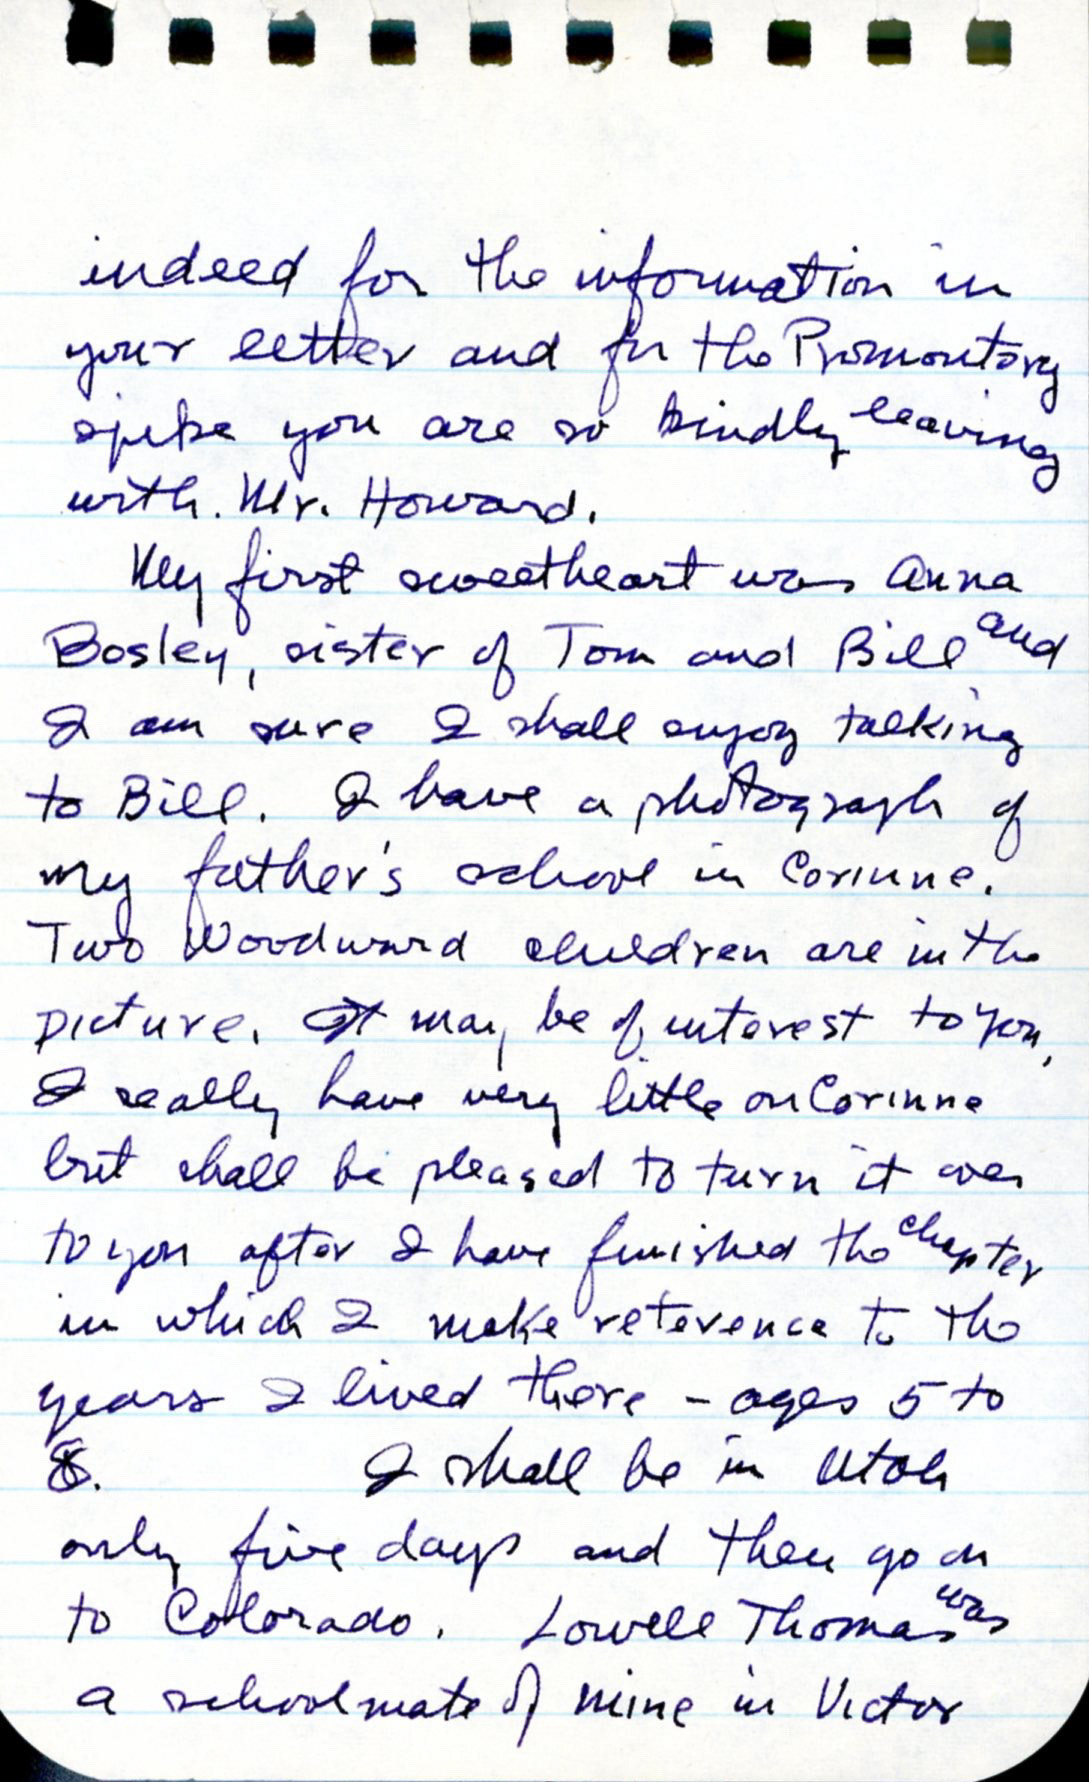 indeed for the information in
your letter and for the Promontory
spike you are so kindly leaving
with. Mr. Howard.
My first sweetheart was Anna
Bosley, sister of Tom and Bill and
I am sure I shall enjoy talking
to Bill. I have a photograph of
my father's school in Corinne.
Two Woodward children are in the
picture. It may be of interest to you,
I really have very little on Corinne
but shall be pleased to turn it over
to you after I have finished the chapter
in which I make reference to the
years I lived there - ages 5 to
8. I shall be in Utah
only five days and then go on
to Colorado. Lowell Thomas was
a schoolmate of mine in Victor